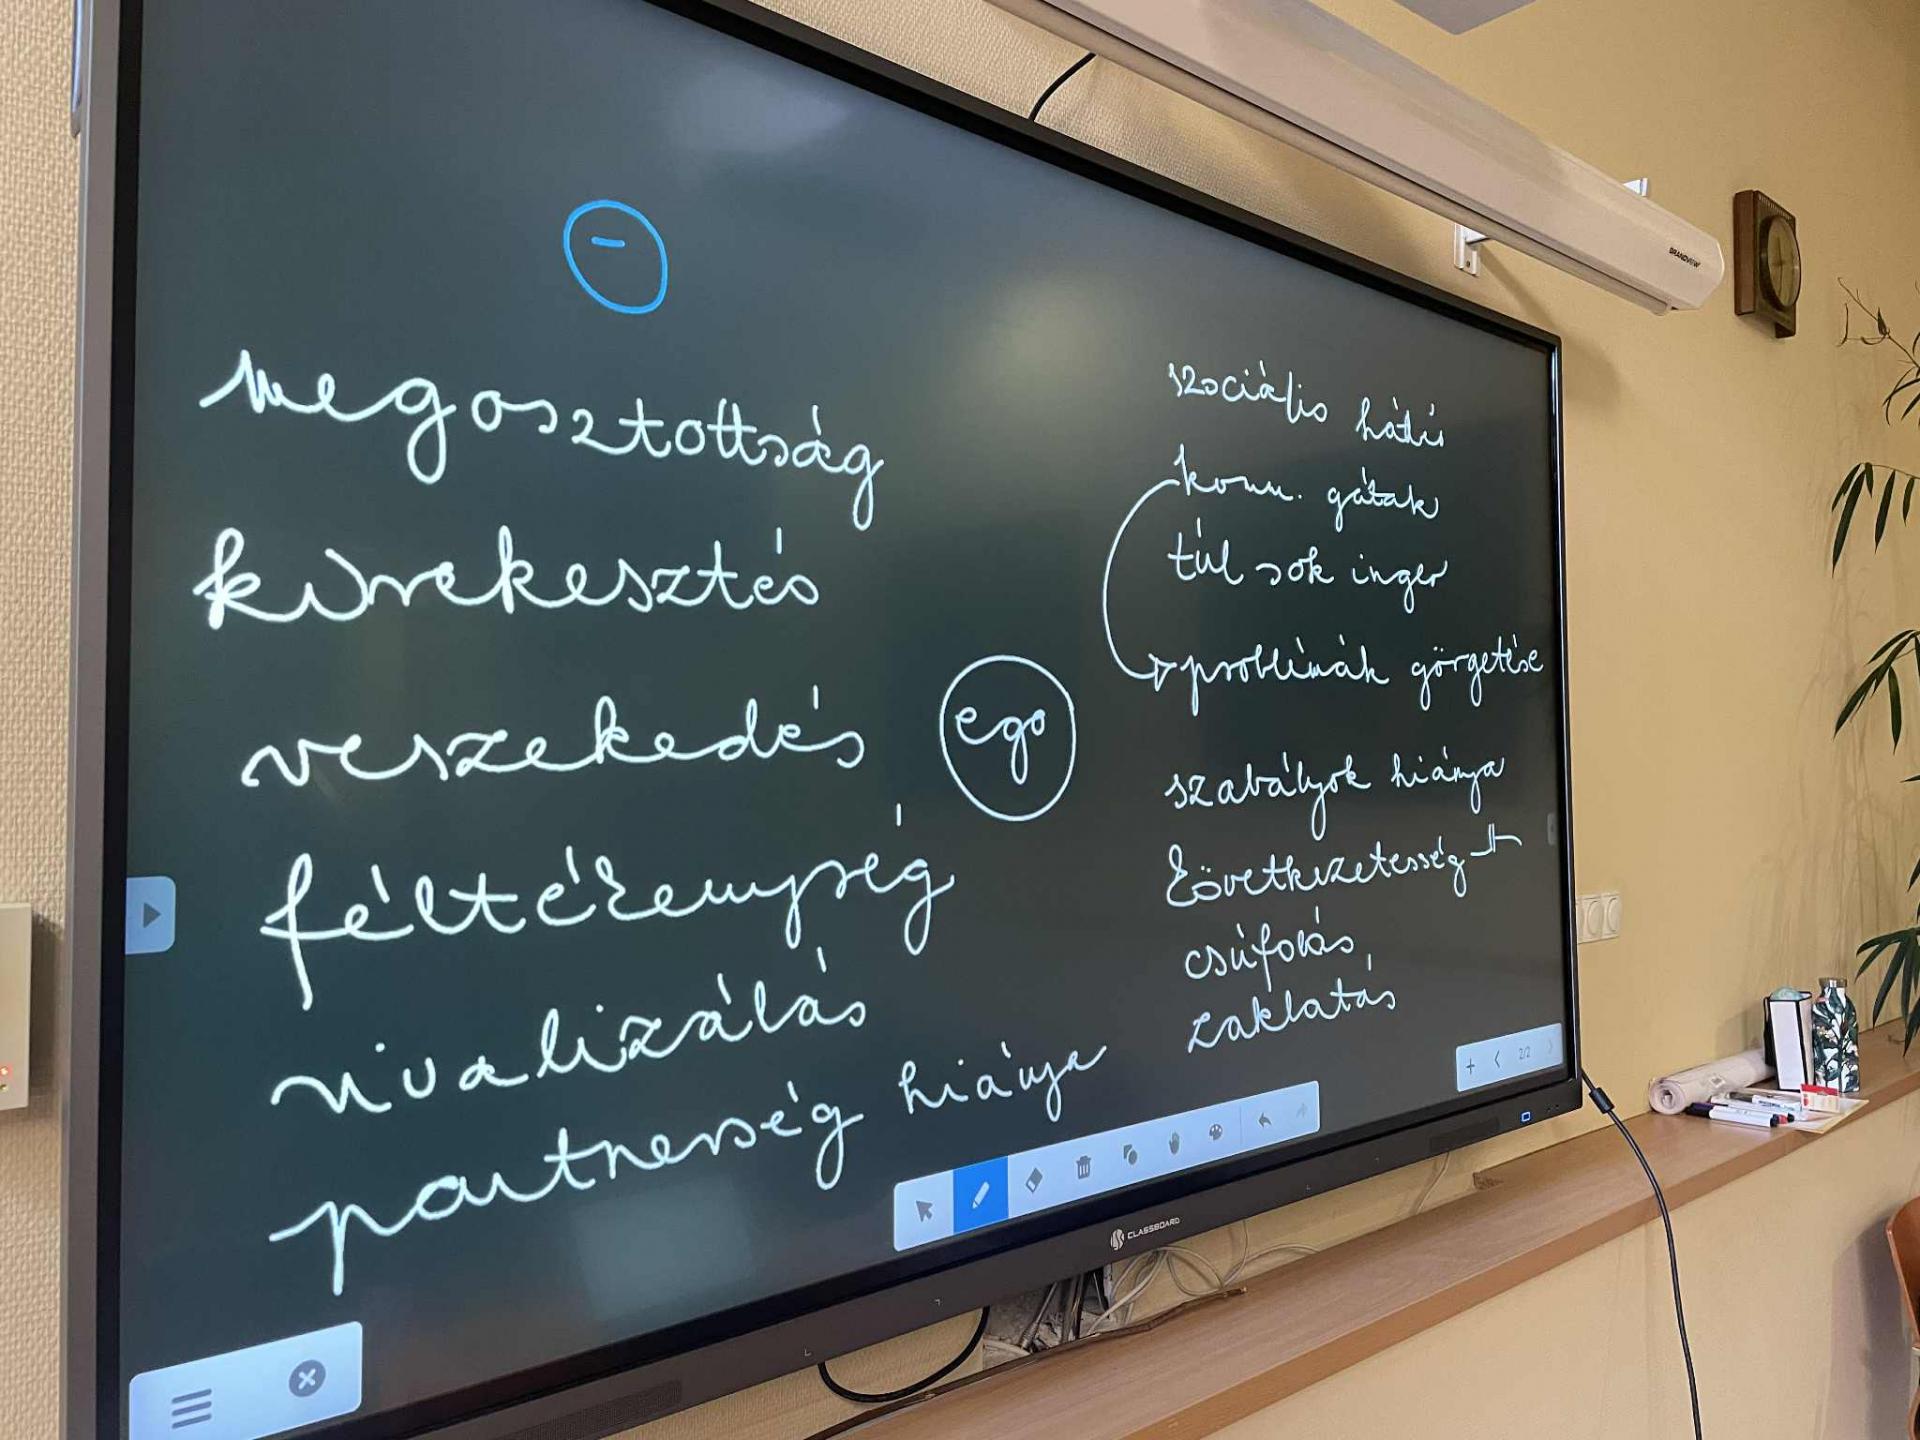 -
megosztottság
kirekesztés
veszekedés
féltékenység
rivalizálás
partnerség hiánya
ego
szociális háttér
komm. gátak
túl sok inger
problémák görgetése
szabályok hiánya
következetesség
csúfolás
zaklatás
2/2
CLASSBOARD
BRANDVIEW